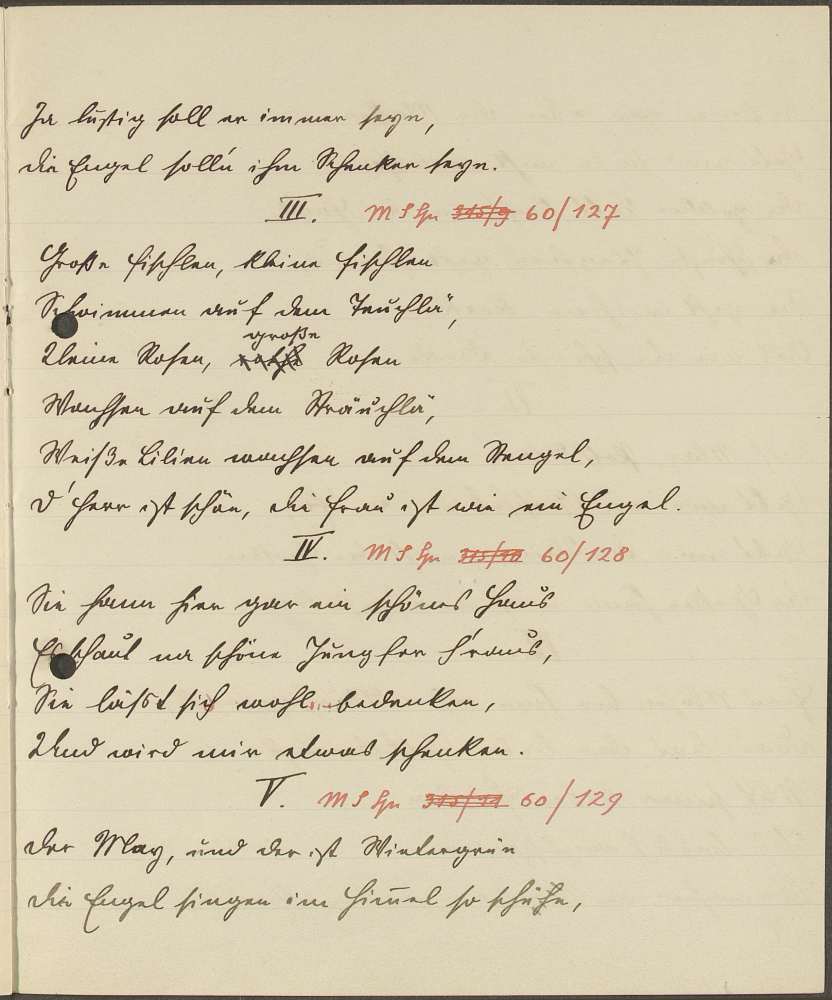 Ja lustig soll er immer seyn,
die Engel soll'n ihm Schenker seyn.
III. MS Hu 315/9 60/127
Große Fischlen, kleine Fischlen
Schwimmen auf dem Teuchlä,
große
Kleine Rosen, Rosen
Wachsen auf dem Sträuchlä,
Weiße Lilien wachsen auf dem Stengel,
D' Herr ist schön, die Frau ist wie ein Engel.
IV. MS 315/10 60/128
Sie hann hier gar ein schönes Haus
Es schaut na schöne Jungfer h'raus,
Sie läßt sich wohl bedenken,
Und wird mir etwas schenken.
V. MS 315/11 60/129
Der May, und der ist Wintergrün
die Engel singen im Himel so schühe,